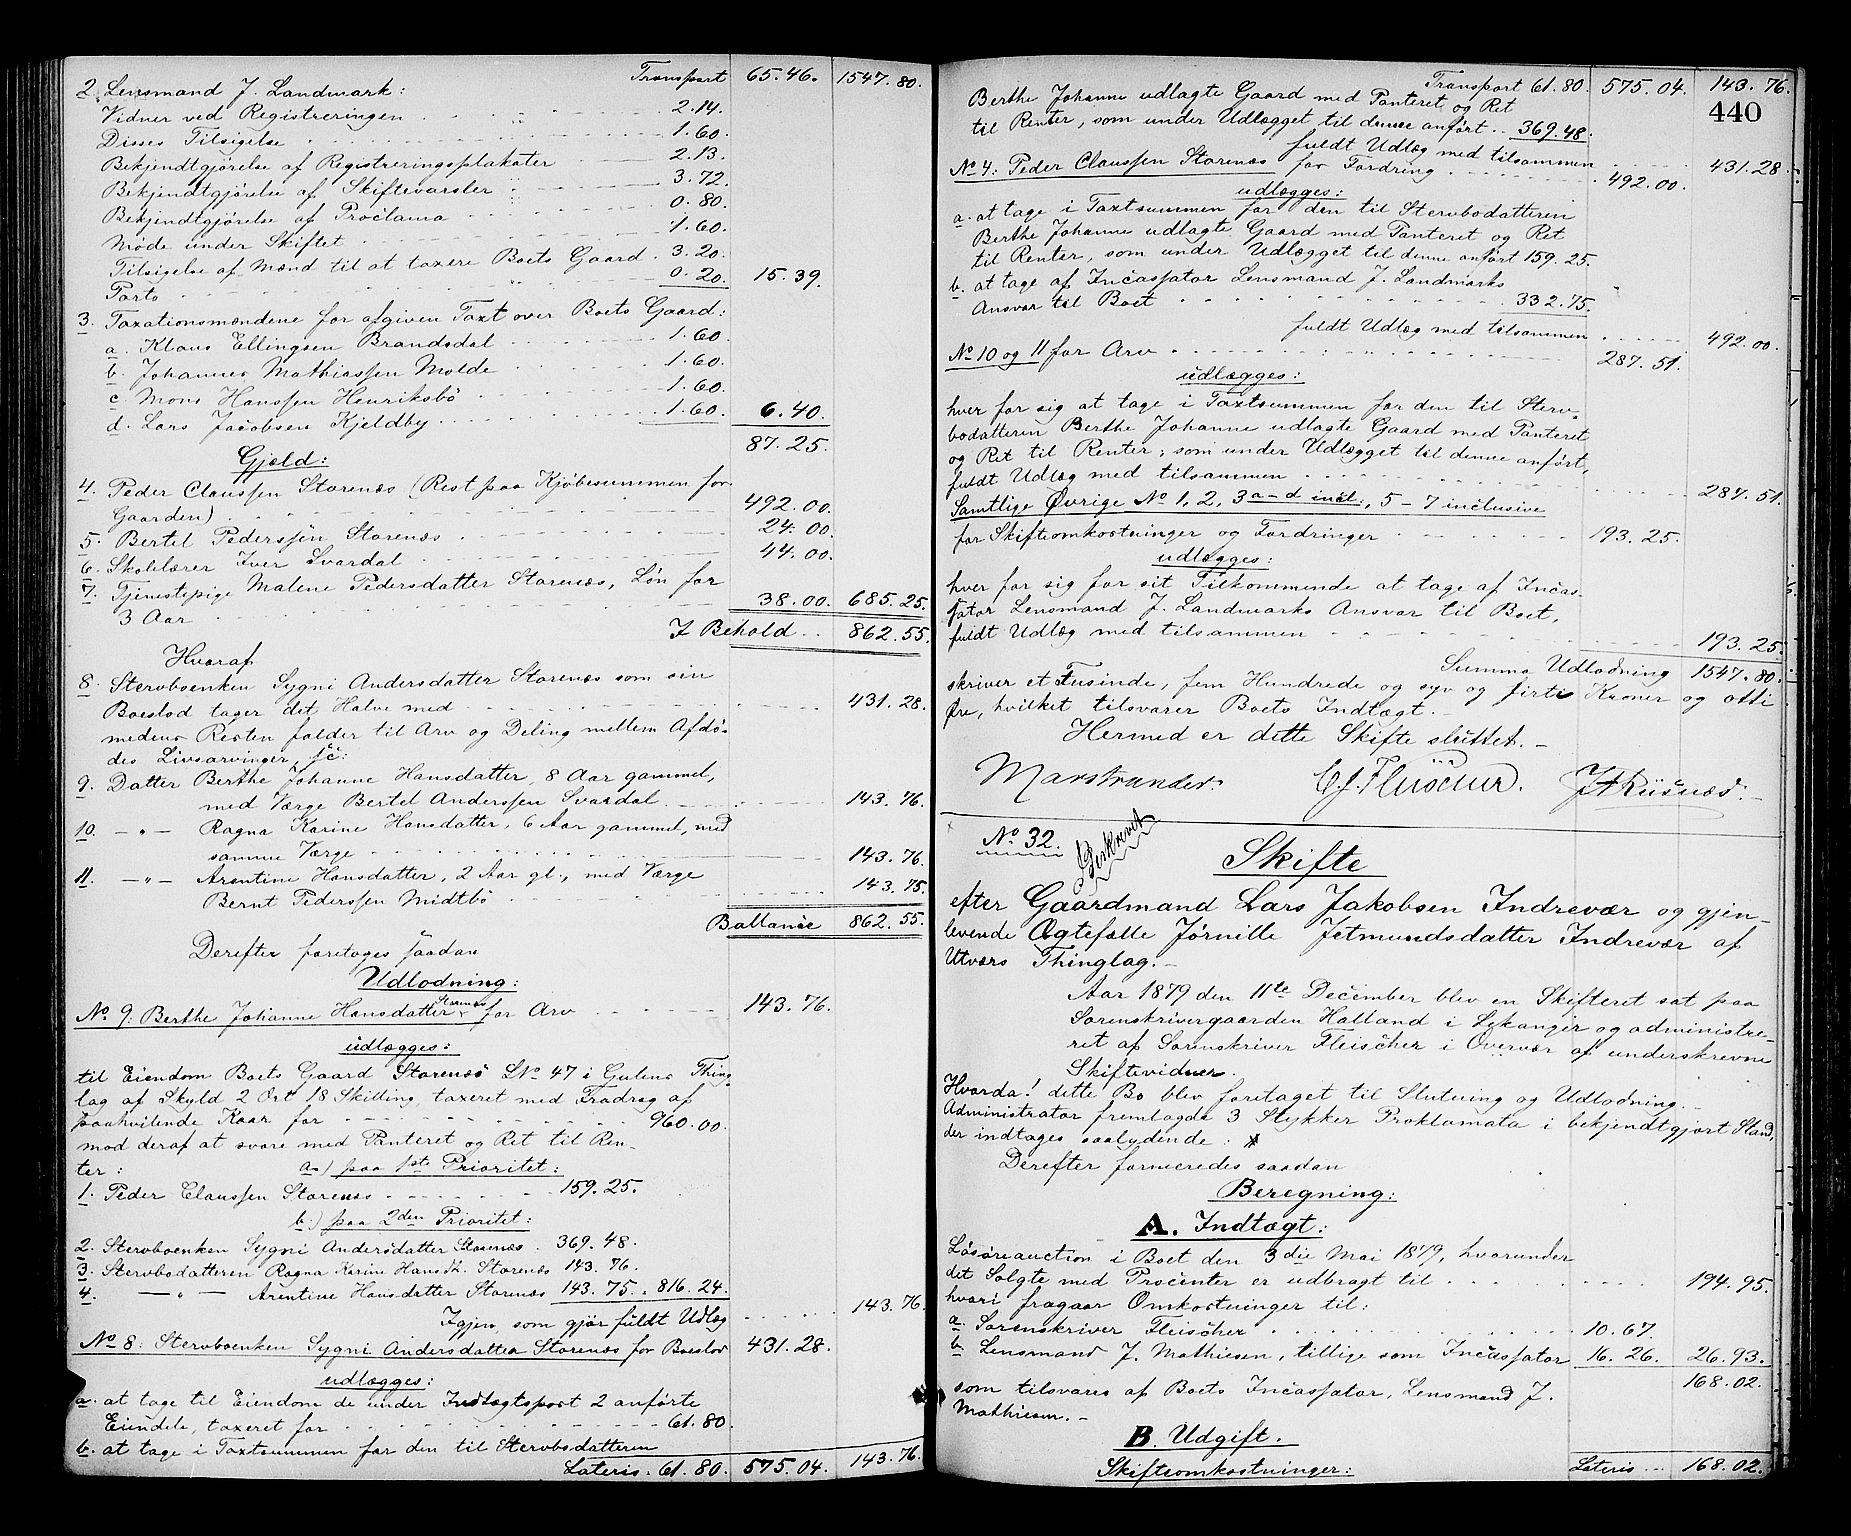 Transport 65.46. 1547.80.
2. Lensmand J. Landmark:
Vidner ved Registreringen 2.14.
Disses Tilsigelse 1.60.
Bekjendtgjörelse af Registreringsplakater 2.13.
Bekjendtgjörelse af Skiftevarsler 3.72.
Bekjendtgjörelse af Proclama 0.80.
Möde under Skiftet 1.60.
Tilsigelse af Mænd til at taxere Boets Gaard 3.20.
Porto 0.20. 15.39.
3. Taxationsmændene for afgiven Taxt over Boets Gaard:
a. Klaus Ellingsen Brandsdal 1.60.
b. Johannes Mathiassen Molde 1.60.
c. Mons Hanssen Henriksbö 1.60.
d. Lars Jacobsen Kjeldby 1.60. 6.40.
87.25.
Gjæld:
4. Peder Claussen Storenæs (Rest paa Kjöbesummen for
Gaarden) 492.00.
5. Bertel Pederssen Storenæs 24.00.
6. Skolelærer Iver Svardal 44.00.
7. Tjenestepige Malene Pedersdatter Storenæs, Lön for
3 Aar 38.00. 685.25.
I Behold 862.55.
Hvoraf
8. Stervboenken Sygni Andersdatter Storenæs som sin
Boeslod tager det Halve med 431.28.
medens Resten falder til Arv og Deling mellem Afdö-
des Livsarvinger, sc:
9. Datter Berthe Johanne Hansdatter, 8 Aar gammel,
med Værge Bertel Anderssen Svardal 143.76.
10. —„— Ragna Karine Hansdatter, 6 Aar gammel, med
samme Værge 143.76.
11. —„— Arentine Hansdatter, 2 Aar gl., med Værge
Bernt Pederssen Midtbö 143.75.
Ballance 862.55.
Derefter foretoges saadan
Udlodning:
No 9: Berthe Johanne Hansdatter Storenæs for Arv 143.76.
udlægges:
til Eiendom Boets Gaard Storenæs LNo 47 i Gulens Thing-
lag af Skyld 2 Ort 18 Skilling, taxeret med Fradrag af
paahvilende Kaar for 960.00.
mod deraf at svare med Panteret og Ret til Ren-
ter: a.) paa 1ste Prioritet:
1. Peder Claussen Storenæs 159.25.
b.) paa 2den Prioritet:
2. Stervboenken Sygni Andersdatter Storenæs 369.48.
3. Stervbodatteren Ragna Karine Hansdt. Storenæs 143.76.
4. —„— Arentine Hansdatter Storenæs 143.75. 816.24.
Igjen, som gjör fuldt Udlæg 143.76.
No 8: Stervboenken Sygni Andersdatter Storenæs for Boeslod 431.28.
udlægges:
a. at tage til Eiendom de under Indtægtspost 2 anförte
Eiendele, taxeret for 61.80.
b. at tage i Taxtsummen for den til Stervbodatteren
Lateris. 61.80. 575.04. 143.76.
Transport 61.80. 575.04. 143.76.
440
Berthe Johanne udlagte Gaard med Panteret og Ret
til Renter, som under Udlægget til denne anfört 369.48.
fuldt Udlæg med tilsammen 431.28.
No 4: Peder Claussen Storenæs for Fordring 492.00.
udlægges:
a. at tage i Taxtsummen for den til Stervbodatteren
Berthe Johanne udlagte Gaard med Panteret og Ret
til Renter, som under Udlægget til denne anfört 159.25.
b. at tage af Incassator Lensmand J. Landmarks
Ansvar til Boet 332.75.
fuldt Udlæg med tilsammen 492.00.
No 10 og 11 for Arv 287.51.
udlægges:
hver for sig at tage i Taxtsummen for den til Sterv-
bodatteren Berthe Johanne udlagte Gaard med Panteret
og Ret til Renter, som under Udlægget til denne anfört,
fuldt Udlæg med tilsammen 287.51.
Samtlige Övrige No 1, 2, 3 a–d incl., 5–7 inclusive
for Skifteomkostninger og Fordringer 193.25.
udlægges:
hver for sig for sit Tilkommende at tage af Incas-
sator Lensmand J. Landmarks Ansvar til Boet,
fuldt Udlæg med tilsammen 193.25.
Summa Udlodning 1547.80.
skriver et Tusinde, fem Hundrede og syv og firti Kroner og otti
Öre, hvilket tilsvarer Boets Indtægt.
Hermed er dette Skifte sluttet.
Marstrander. C. J. Fleischer.
No 32. Beskrevet
Skifte
efter Gaardmand Lars Jakobsen Indrevær og gjen-
levende Ægtefælle Jörnille Jetmundsdatter Indrevær af
Utværs Thinglag.
Aar 1879 den 11te December blev en Skifteret sat paa
Sorenskrivergaarden Halland i Lekanger og administre-
ret af Sorenskriver Fleischer i Overvær af underskrevne
Skiftevidner.
Hvorda! dette Bo blev foretaget til Slutning og Udlodning.
Administrator fremlagde 3 Stykker Proklamata i bekjendtgjort Stand,
der indtages saalydende:
Derefter formeredes saadan
Beregning:
A. Indtægt:
Lösöreauction i Boet den 3die Mai 1879, hvorunder
det Solgte med Procenter er udbragt til 194.95.
hvori fragaar Omkostninger til:
a. Sorenskriver Fleischer 10.67.
b. Lensmand J. Mathiesen, tillige som Incassator 16.26. 26.93.
168.02.
som tilsvares af Boets Incassator, Lensmand J.
Mathiesen.
B. Udgift.
Skifteomkostninger:
Lateris 168.02.